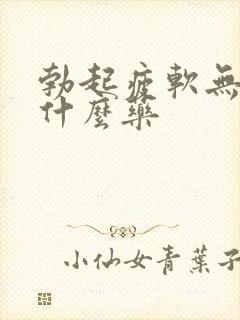 勃起疲軟無
什麼藥
小仙女青葉子